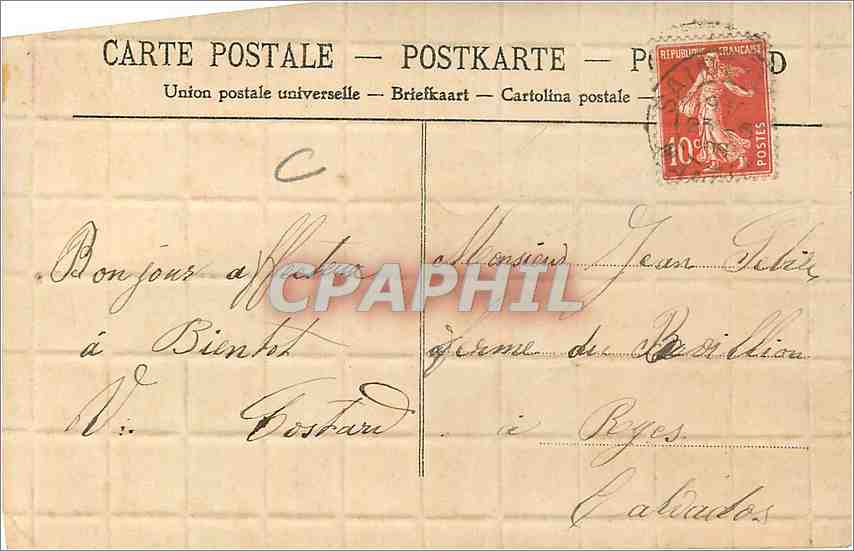 CARTE POSTALE — POSTKARTE — PO D
Union postale universelle — Briefkaart — Cartolina postale —
REPUBLIQUE FRANÇAISE
10c
POSTES
C
Bonjour affectueux
à Bientot
V. Costard
CPAPHIL
Monsieur Jean
ferme du Pavillion
à Ryes
Calvados